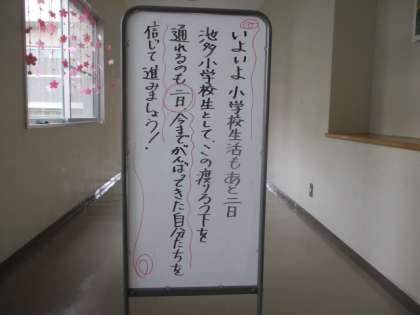 いよいよ小学校生活もあと二日
池多小学校生として、この渡りろう下を
通れるのも二日、今までがんばってきた自分たちを
信じて進みましょう!